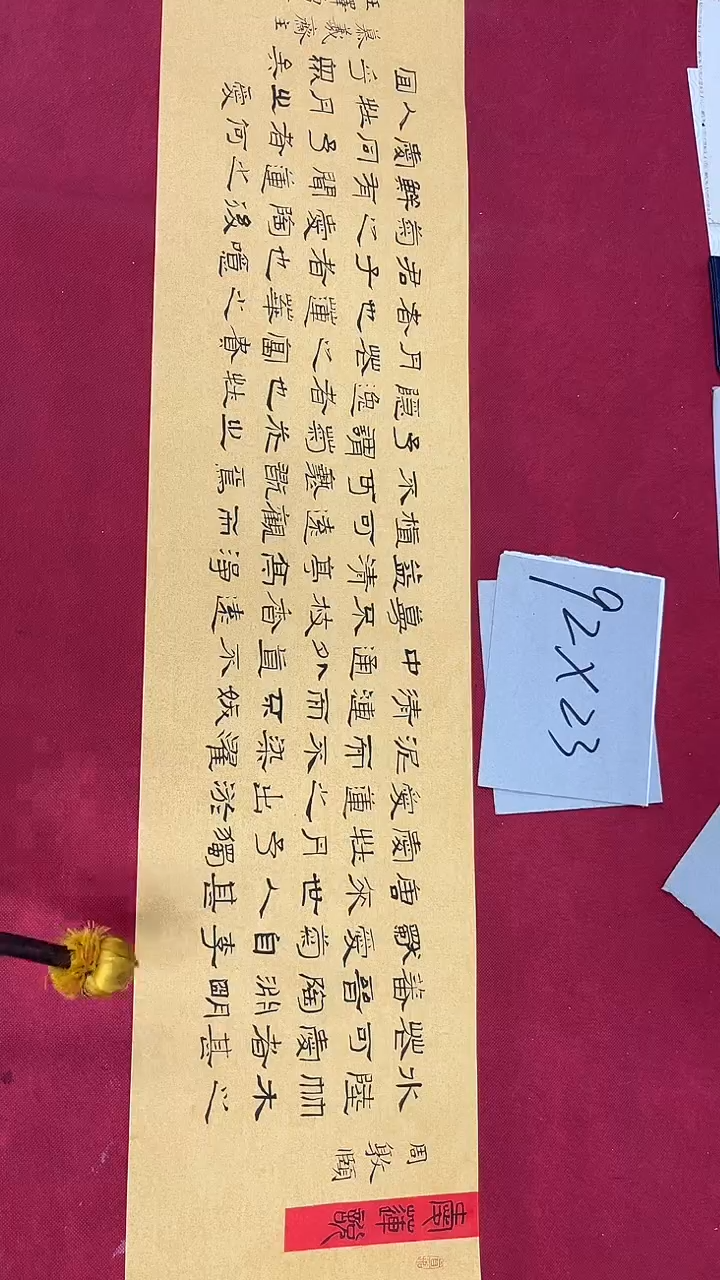 愛蓮說
周敦頤
水陸艸木之
華可愛者甚
蕃晉陶淵明
獨愛菊自李
唐來世人甚
愛牡丹予獨
愛蓮之出淤
泥而不染濯
清漣而不妖
中通外直不
蔓不枝香遠
益清亭亭淨
植可遠觀而
不可褻翫焉
予謂菊華之
隱逸者也牡
丹華之富貴
者也蓮華之
君子者也噫
菊之愛陶後
鮮有聞蓮之
愛同予者何
人牡丹之愛
宜乎眾矣
慕羲齋主
92X23